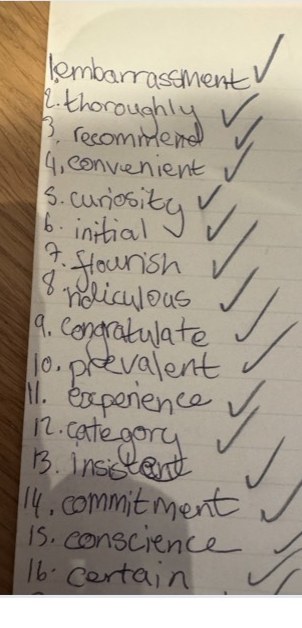 1embarrassment
2. thoroughly
3. recommend
4, convenient
5. curiosity
6. initial
7. flourish
8. ridiculous
9. congratulate
10. prevalent
11. experience
12. category
13. insistent
14, commitment
15. conscience
16. certain